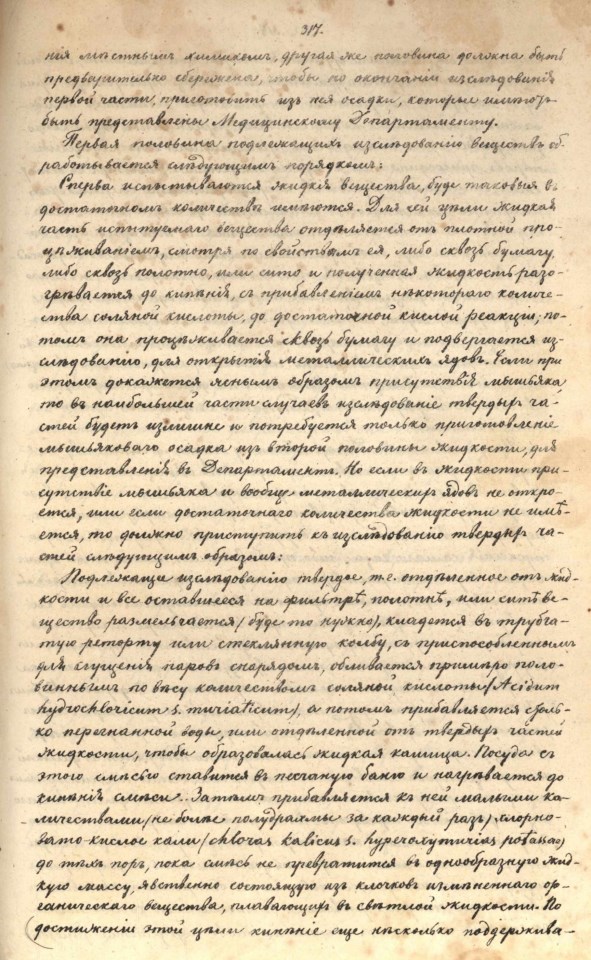 317.
нія мѣстнымъ химикомъ, другая же половина должна быть
предварительно сбережена, чтобы по окончаніи изслѣдованія
первой части, приготовить изъ нея осадки, которые имѣютъ
быть представлены Медицинскому Департаменту.
Первая половина подлежащихъ изслѣдованію веществъ об-
работывается слѣдующимъ порядкомъ:
Сперва испытываются жидкія вещества, буде таковыя въ
достаточномъ количествѣ имѣются. Для сей цѣли жидкая
часть испытуемаго вещества отдѣляется отъ плотной про-
цѣживаніемъ, смотря по свойствамъ ея, либо сквозь бумагу,
либо сквозь полотно, или сито и полученная жидкость разо-
грѣвается до кипѣнія, съ прибавленіемъ нѣкотораго количе-
ства соляной кислоты, до достаточной кислой реакціи; по-
томъ она процѣживается сквозь бумагу и подвергается из-
слѣдованію, для открытія металлическихъ ядовъ. Если при
этомъ докажется яснымъ образомъ присутствіе мышьяка
то въ наибольшей части случаевъ изслѣдованіе твердыхъ ча-
стей будетъ излишне и потребуется только приготовленіе
мышьяковаго осадка изъ второй половины жидкости, для
представленія въ Департаментъ. Но если въ жидкости при-
сутствіе мышьяка и вообще металлическихъ ядовъ не откро-
ется, или если достаточнаго количества жидкости не имѣ-
ется, то должно приступить къ изслѣдованію твердыхъ ча-
стей слѣдующимъ образомъ:
Подлежащее изслѣдованію твердое, т.е. отдѣленное отъ жид-
кости и все оставшееся на фильтрѣ, полотнѣ, или ситѣ ве-
щество размельчается (буде то нужно), кладется въ трубча-
тую реторту или стеклянную колбу, съ приспособленнымъ
для сгущенія паровъ снарядомъ, обливается примѣрно поло-
виннымъ по вѣсу количествомъ соляной кислоты (Acidum
hydrochloricum s. muriaticum), а потомъ прибавляется столь-
ко перегнанной воды, или отдѣленной отъ твердыхъ частей
жидкости, чтобы образовалась жидкая кашица. Посуда съ
этою смѣсью ставится въ песчаную баню и нагрѣвается до
кипѣнія смѣси. Затѣмъ прибавляется къ ней малыми ко-
личествами (не болѣе полудрахмы за каждый разъ) хлорно-
вато-кислое кали (chloras kalicus s. hyperoxymurias potassae)
до тѣхъ поръ, пока смѣсь не превратится въ однообразную жид-
кую массу, явственно состоящую изъ клочковъ измѣненнаго ор-
ганическаго вещества, плавающихъ въ свѣтлой жидкости. По
достиженіи этой цѣли кипѣніе еще нѣсколько поддержива-